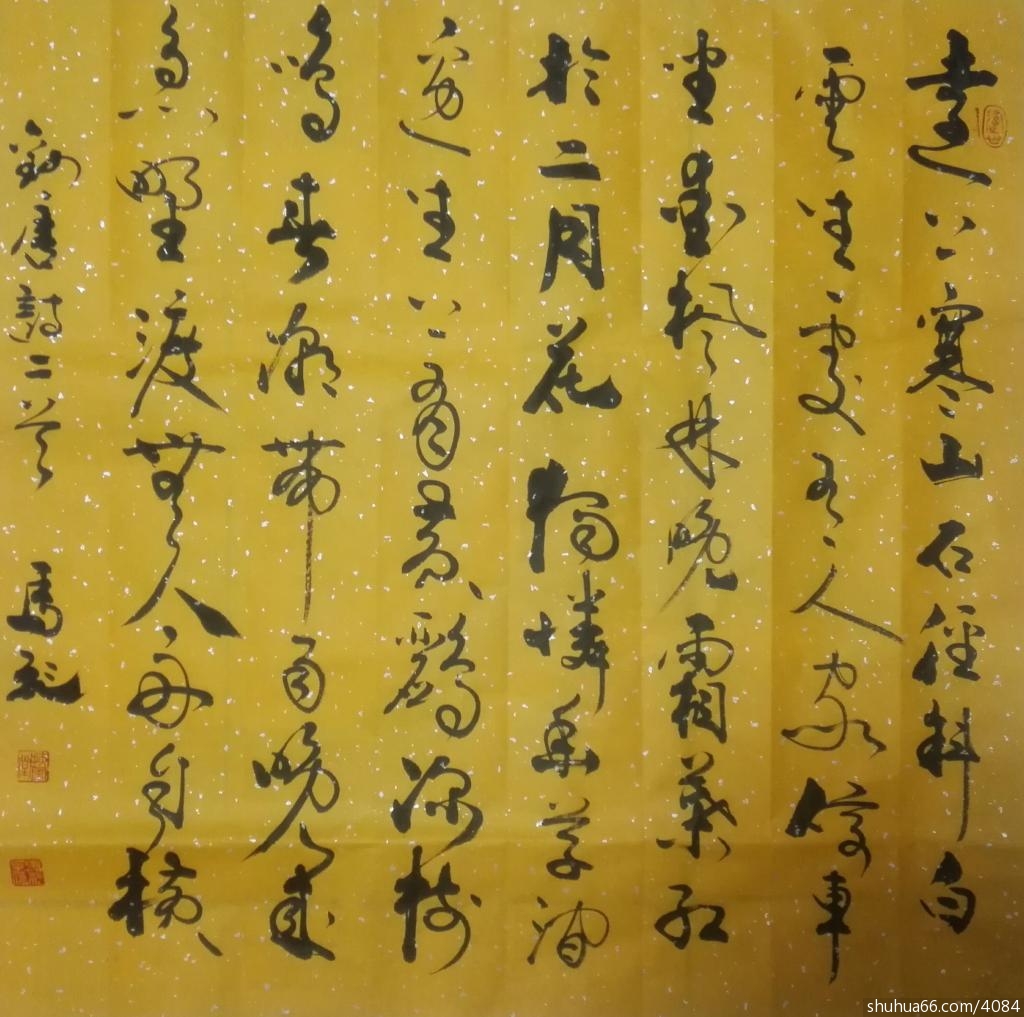 遠上寒山石徑斜白
雲生處有人家停車
坐愛楓林晚霜葉紅
於二月花獨憐幽草澗
邊生上有黃鸝深樹
鳴春潮帶雨晚來
急野渡無人舟自橫
唐詩二首 馬
shuhua66.com/4084